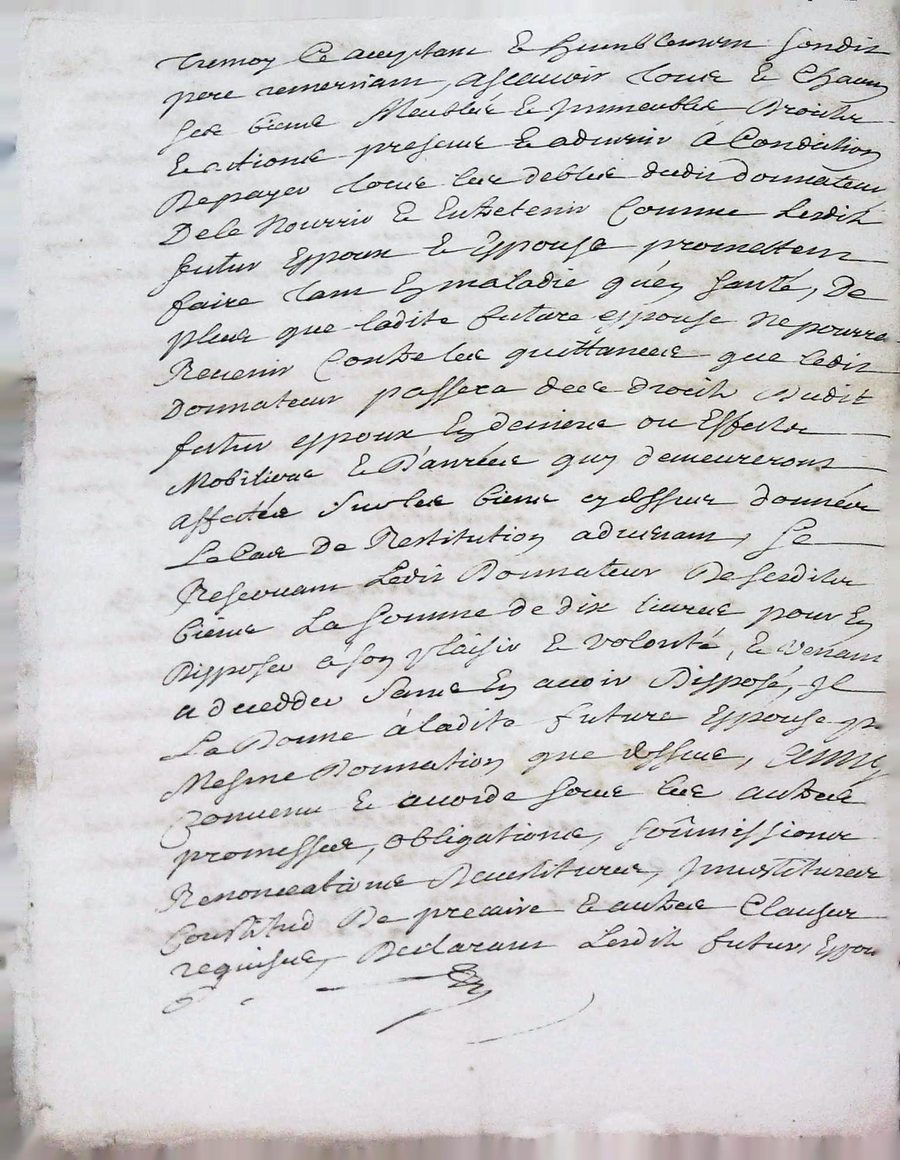 Tremoy Ce acceptant & humblement sondit
pere remerciant, ascauoir tous & Chacuns
ses biens Meubles & Jmmeubles Droicts
& actions presens & aduenir à Condition
De payer tous les debtes dudit donnateur
De le Nourrir & Entretenir Comme Lesdits
futur Espoux & Espouse promettent
faire tant En maladie qu'en santé, De
plus que ladite future espouse Ne pourra
Reuenir Contre les quittances que ledit
Donnateur passera de ses droits Audit
futur espoux En deniers ou Effects
Mobiliers & Danrées quy demeureront
affectés Sur les biens cy dessus donnés
Le Cas De Restitution aduenant, Se
Reseruant Ledit Donnateur De sesdits
biens La Somme de dix liures pour En
Disposer à son plaisir & volonté, & venant
a decedder Sans En auoir Disposé, Jl
La Donne à ladite future Espouse p
Mesme Donnation que dessus, ainsy
Conuenu & acordé sous les autres
promesses, obligations, soûmissions
Renonciations Deuestitures, Jnuestitures
Constitud De precaire & autres Clauses
requises, Declarant Lesdits futurs Espou